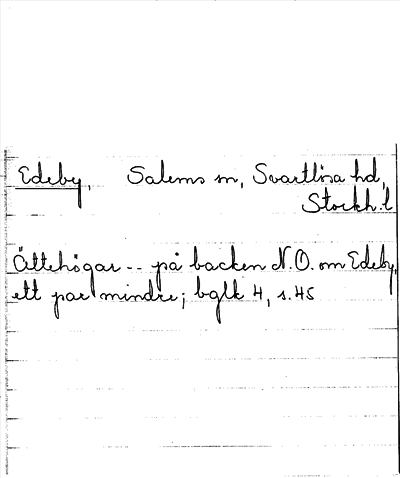 Edeby, Salems sn, Svartlösa hd,
Stockh. l
Ättehögar -- på backen N.O. om Edeby,
ett par mindre; bglk 4, s. 45